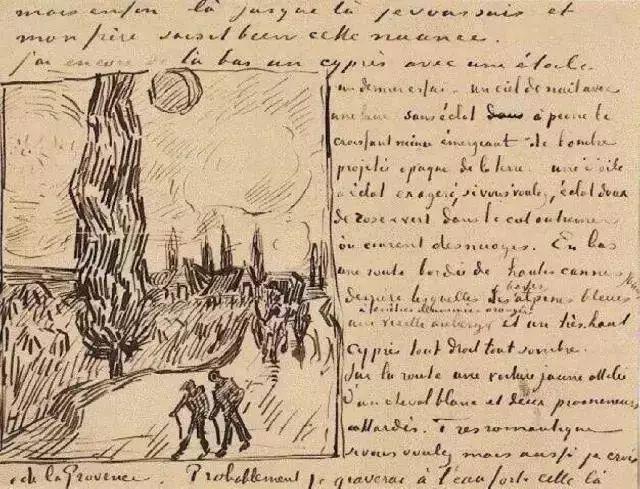 mais enfin là jusque là je vous suis et
mon frère saisit bien cette nuance.
J'ai encore de là bas un cyprès avec une étoile
un dernier essai – un ciel de nuit avec
une lune sans éclat dans à peine le
croissant mince émergeant de l'ombre
projetée opaque de la terre – une étoile
à éclat exagéré, si vous voulez, éclat doux
de rose & vert dans le ciel outremer
où courent des nuages. En bas
une route bordée de hautes cannes
derrière lesquelles les basses alpines bleues
une vieille auberge à fenêtres illuminées orangées et un très haut
cyprès tout droit tout sombre.
Sur la route une voiture jaune attelée
d'un cheval blanc et deux promeneurs
attardés. Très romantique
si vous voulez mais aussi je crois
de la Provence. Probablement je graverai à l'eau forte celle là